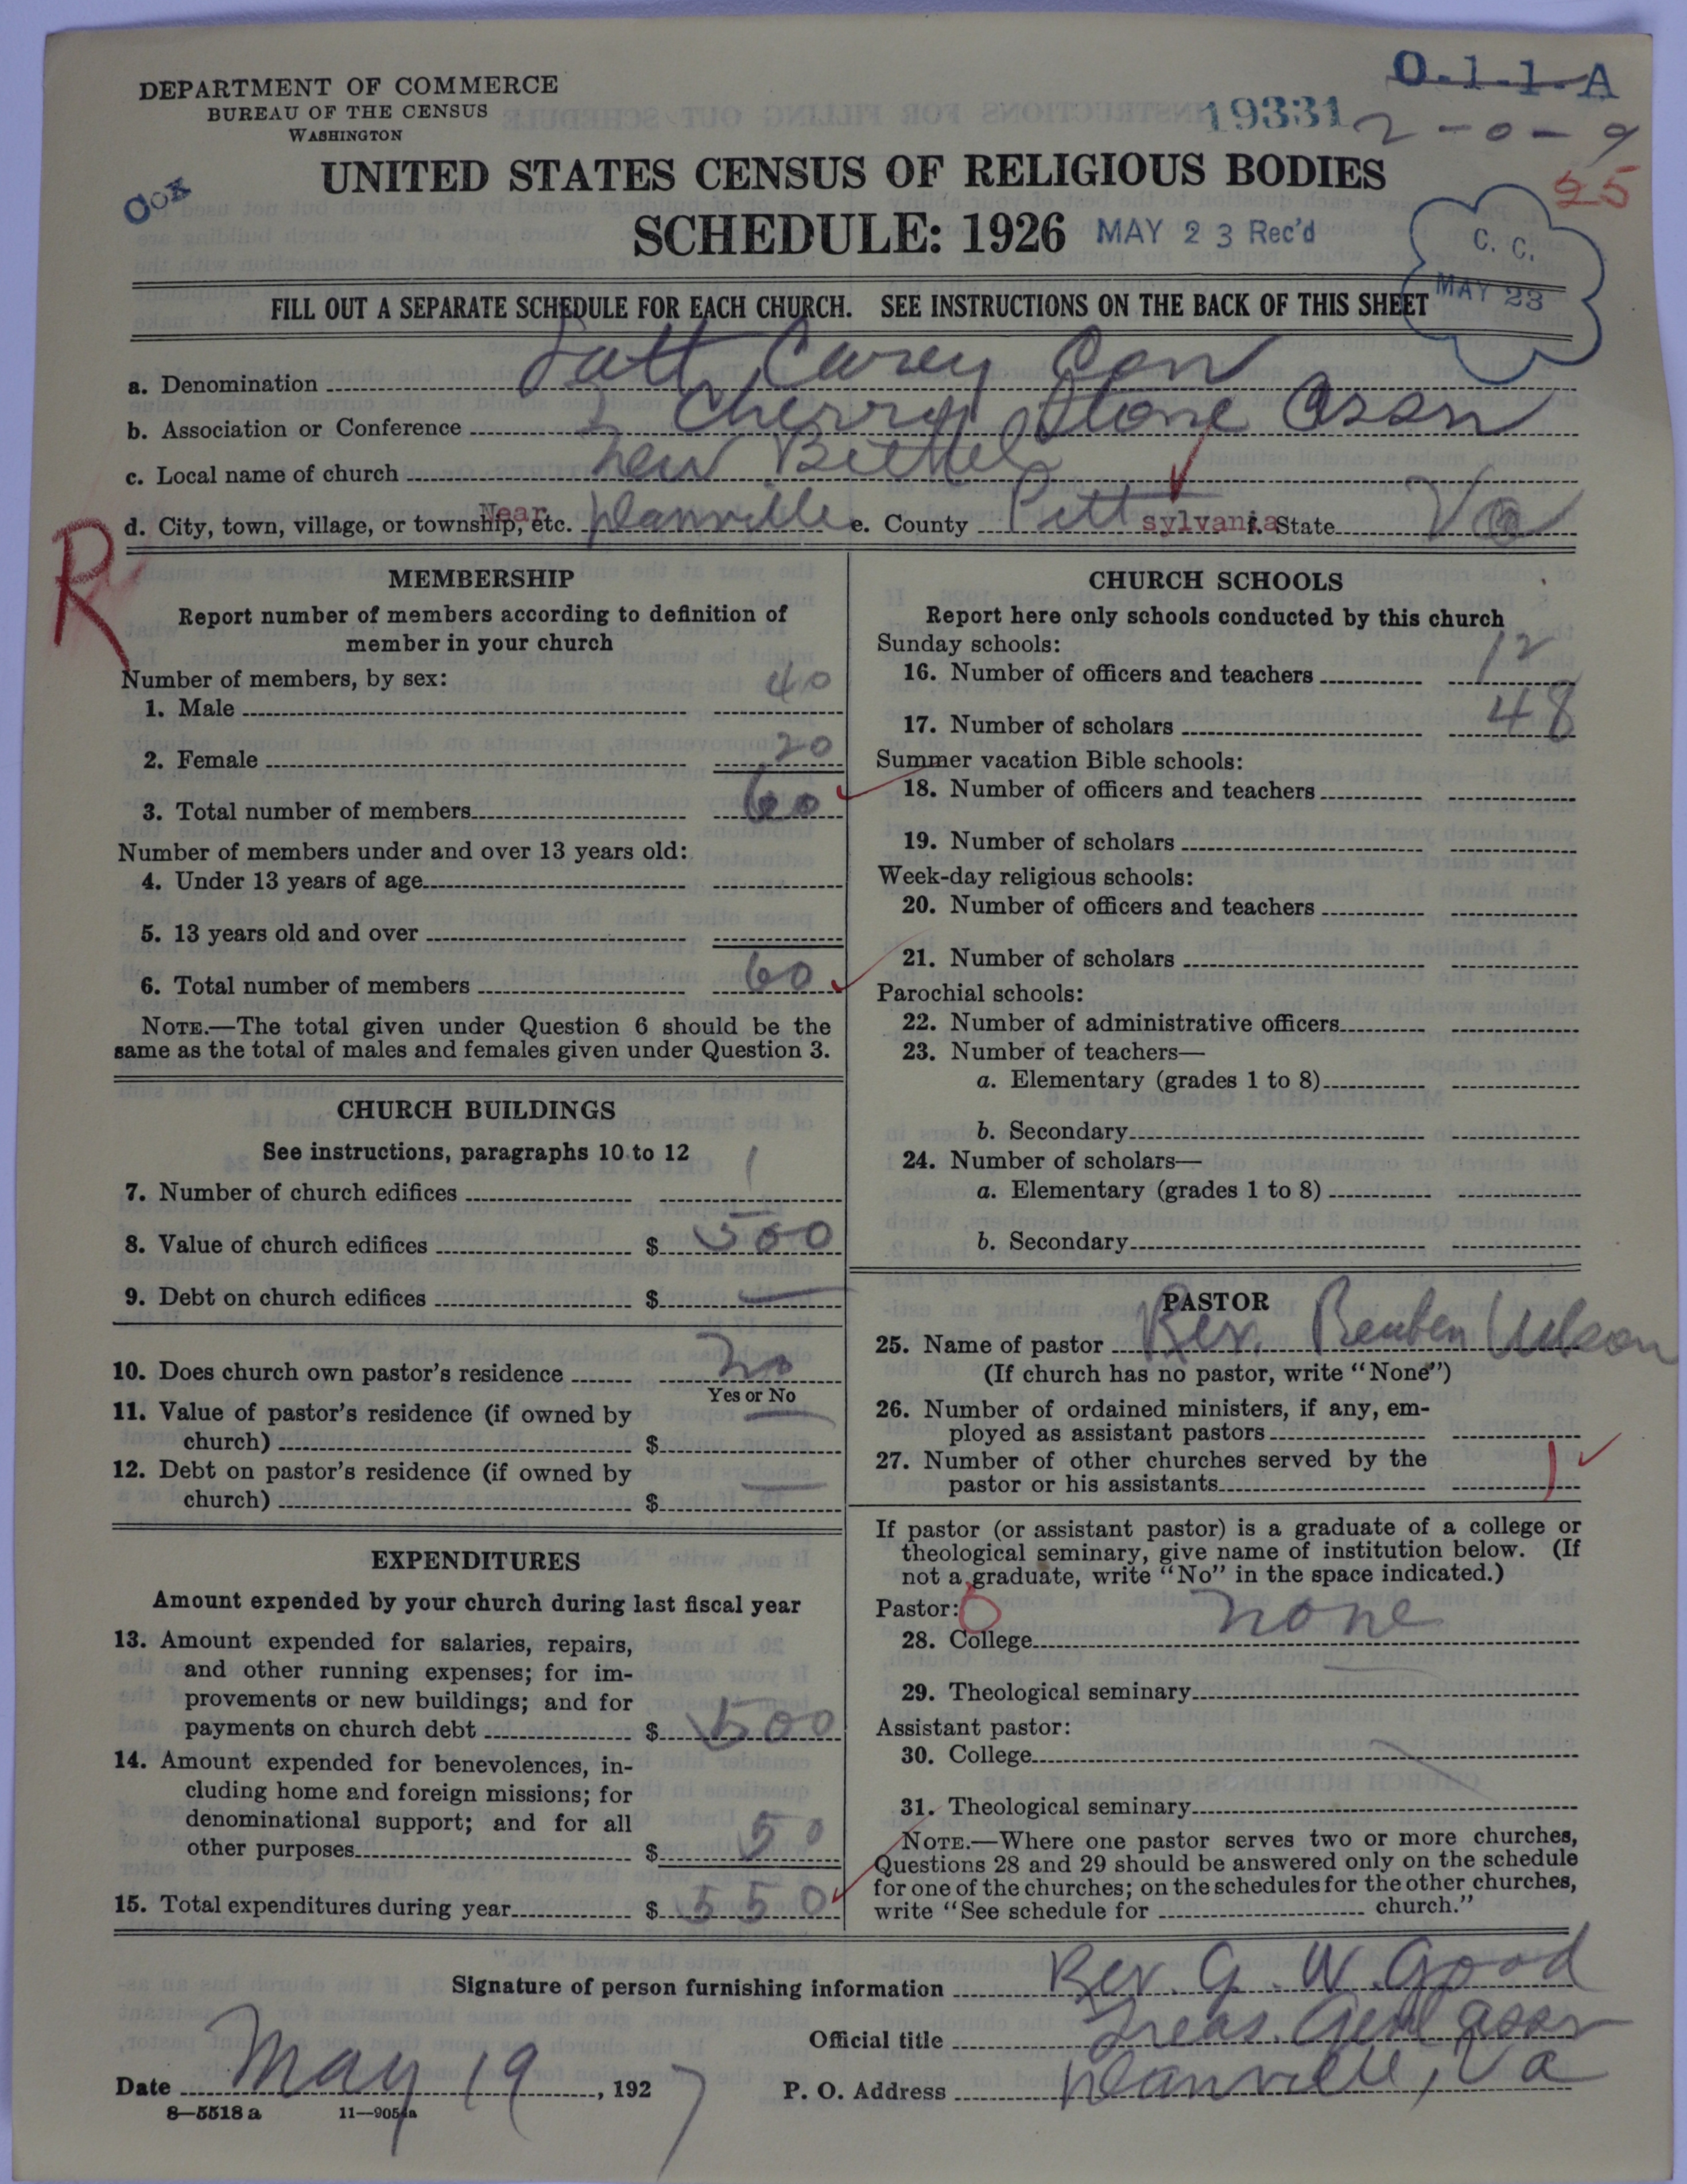 DEPARTMENT OF COMMERCE
BUREAU OF THE CENSUS
WASHINGTON
O.1.1.A
19331
2-0-9
25
COX
UNITED STATES CENSUS OF RELIGIOUS BODIES
SCHEDULE: 1926
MAY 23 Rec'd
C. C.
MAY 23
FILL OUT A SEPARATE SCHEDULE FOR EACH CHURCH. SEE INSTRUCTIONS ON THE BACK OF THIS SHEET
a. Denomination Lott Carey Con
b. Association or Conference Cherry Stone Assn
c. Local name of church New Bethel
d. City, town, village, or township, etc. Near Danville e. County Pittsylvania f. State Va
R
MEMBERSHIP
Report number of members according to definition of
member in your church
Number of members, by sex:
1. Male 40
2. Female 20
3. Total number of members 60
Number of members under and over 13 years old:
4. Under 13 years of age
5. 13 years old and over
6. Total number of members 60
NOTE.—The total given under Question 6 should be the
same as the total of males and females given under Question 3.
CHURCH BUILDINGS
See instructions, paragraphs 10 to 12
7. Number of church edifices 1
8. Value of church edifices $ 500
9. Debt on church edifices $ —
10. Does church own pastor's residence no
Yes or No
11. Value of pastor's residence (if owned by
church) $ —
12. Debt on pastor's residence (if owned by
church) $ —
EXPENDITURES
Amount expended by your church during last fiscal year
13. Amount expended for salaries, repairs,
and other running expenses; for im-
provements or new buildings; and for
payments on church debt $ 500
14. Amount expended for benevolences, in-
cluding home and foreign missions; for
denominational support; and for all
other purposes $ 50
15. Total expenditures during year $ 550
CHURCH SCHOOLS
Report here only schools conducted by this church
Sunday schools:
16. Number of officers and teachers 12
17. Number of scholars 48
Summer vacation Bible schools:
18. Number of officers and teachers
19. Number of scholars
Week-day religious schools:
20. Number of officers and teachers
21. Number of scholars
Parochial schools:
22. Number of administrative officers
23. Number of teachers—
a. Elementary (grades 1 to 8)
b. Secondary
24. Number of scholars—
a. Elementary (grades 1 to 8)
b. Secondary
PASTOR
25. Name of pastor Rev. Reuben Wilson
(If church has no pastor, write "None")
26. Number of ordained ministers, if any, em-
ployed as assistant pastors
27. Number of other churches served by the
pastor or his assistants 1
If pastor (or assistant pastor) is a graduate of a college or
theological seminary, give name of institution below. (If
not a graduate, write "No" in the space indicated.)
Pastor: 0
28. College none
29. Theological seminary
Assistant pastor:
30. College
31. Theological seminary
NOTE.—Where one pastor serves two or more churches,
Questions 28 and 29 should be answered only on the schedule
for one of the churches; on the schedules for the other churches,
write "See schedule for church."
Signature of person furnishing information Rev. G. W. Good
Official title Treas. Genl assn
Date May 19, 1927
P. O. Address Danville, Va
8—5518 a 11—9054a